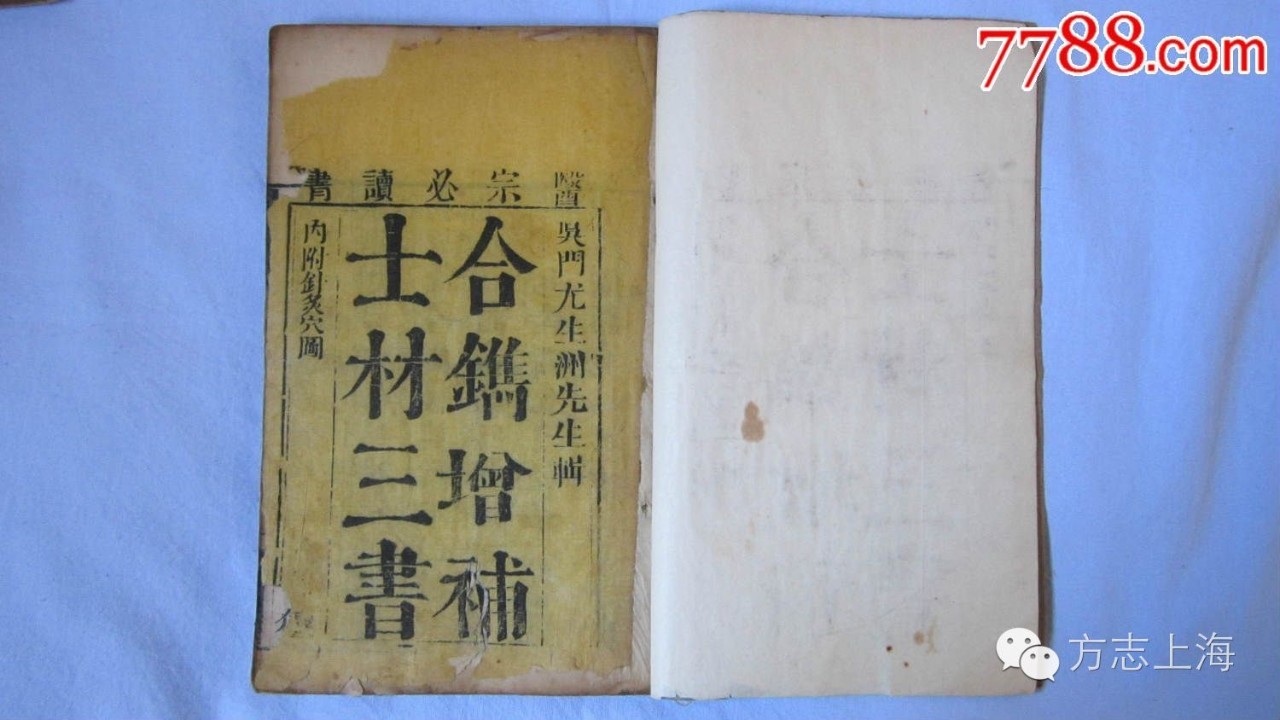 7788.com
醫宗必讀書
吳門尤生洲先生輯
合鐫增補
士材三書
內附針灸穴圖
方志上海